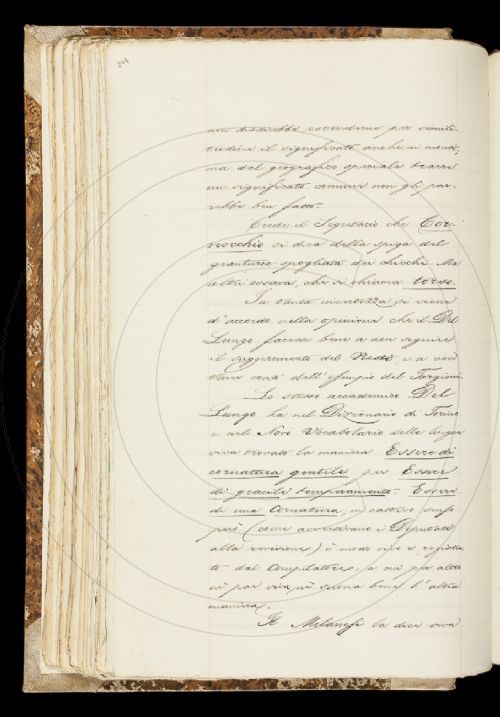 244
non dovrebbe estendersi per simili-
tudine il significato anche ai
ma dal geografico speciale trarre
un significato comune non gli par-
rebbe ben fatto.
Crede il Segretario che Cor-
nocchio si dica della spiga del
granturco spogliata dei chicchi. Ma
altri osserva, che si chiama torso.
In tanta incertezza si viene
d'accordo nella opinione che il Del
Lungo faccia bene a non seguire
il suggerimento del e a non
tener conto dell'esempio del Targioni.
Lo stesso accademico Del
Lungo ha nel Dizionario di Torino
e nel Novo Vocabolario della lingua
viva trovato la maniera Essere di
cornatura gentile per Essere
di gracile temperamento. Essere
di una cornatura, in cattivo senso
però (come avvertivano i Deputati
alla revisione) è modo vivo e registra-
to dal Compilatore, a cui per altro
non par viva nè suona bene l'altra
maniera.
Il Milanesi la dice viva